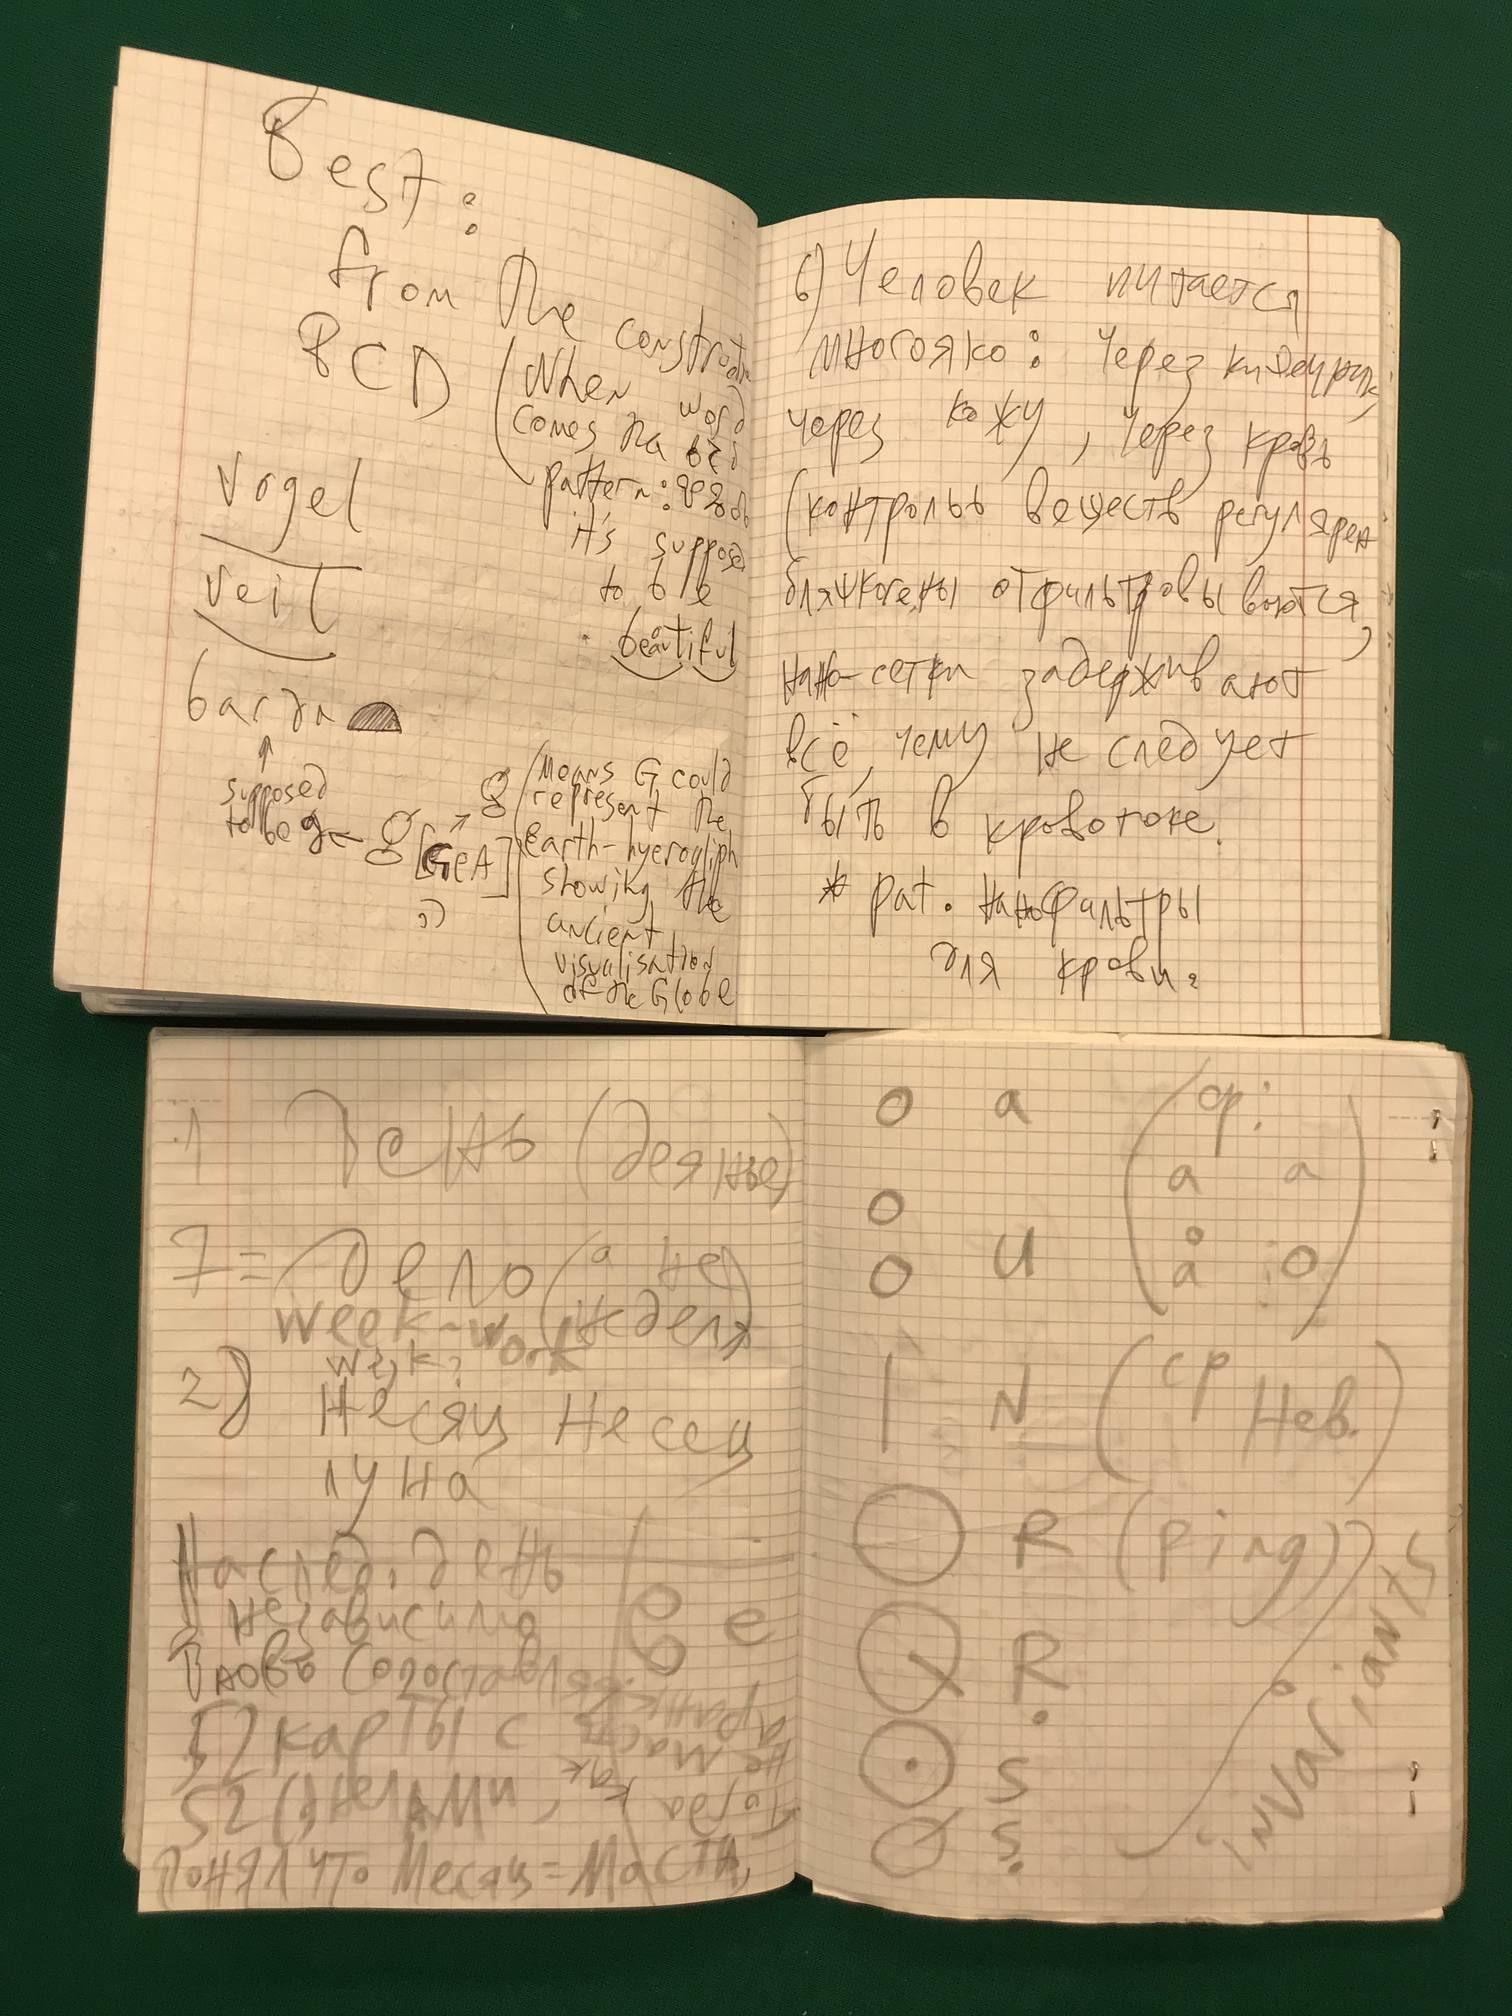 Best:
from the construction
BCD
(When word
comes na
pattern:
it's supposed
to be
beautiful
vogel
veit
supposed
to be g
[GeA]
:)
(Means G could
represent the
Earth-hyerogliph
showing the
ancient
visualisation
of the Globe
6) Человек питается
многояко: через
через кожу, через кровь
(контрольь веществ регулярен
отфильтровываются,
нано-сетки задерживают
всё, чему не следует
быть в кровотоке.
* pat. нанофильтры
для крови.
1 День (деянье)
7= дело (а не
неделя)
week-work
2)
Несяц Несец
луна
Наслед. день
независимо
вновь сопоставлял
52 карты с
52
e
Тогда как
не масть
а ранжиры
понял что Месяц = Масть,
o a (ср:
a a
o
o u å :o)
| N (ср Нев.)
R (ping)
R
S
Ṣ
invariants